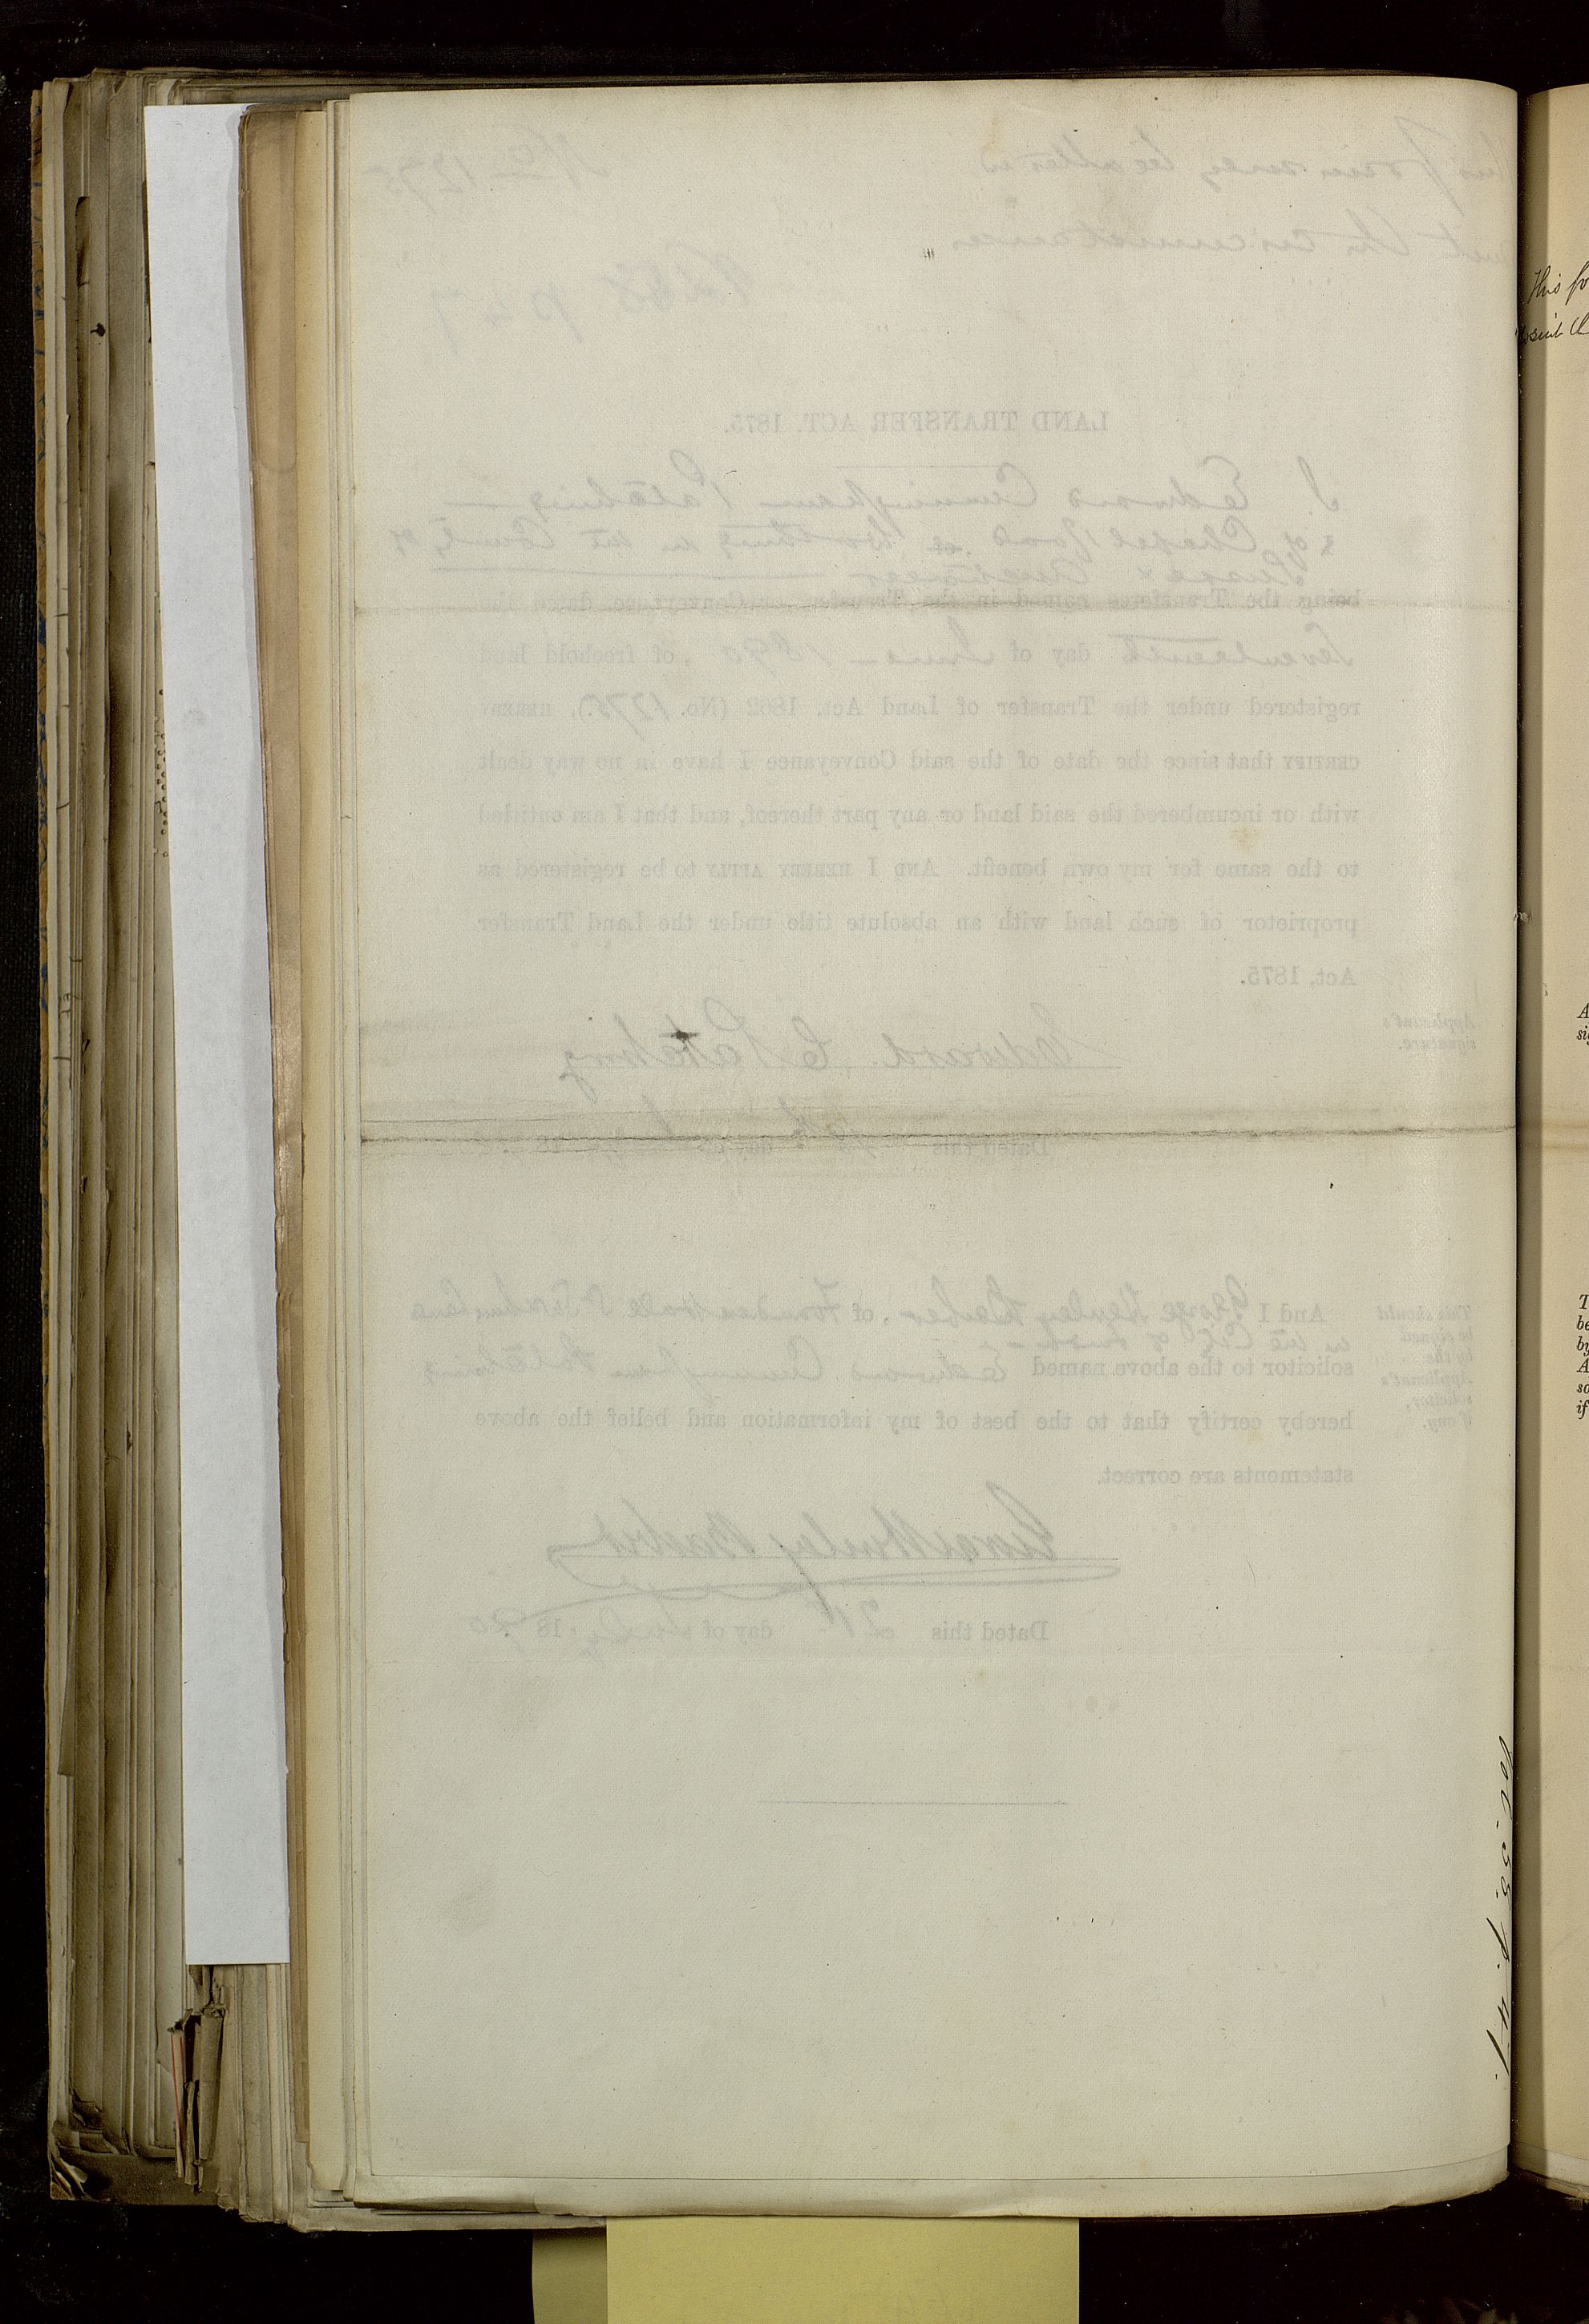 This form may be altered
circumstances
No 1275
p 47
LAND TRANSFER ACT, 1875.
I, Edward Cunningham Patching
of Chapel Road Worthing in the County of
Sussex
being the Transferee named in the Transfer or Conveyance dated the
Seventeenth day of June 1890, of freehold land
registered under the Transfer of Land Act, 1862 (No. 1275), HEREBY
CERTIFY that since the date of the said Conveyance I have in no way dealt
with or incumbered the said land or any part thereof, and that I am entitled
to the same for my own benefit. AND I HEREBY APPLY to be registered as
proprietor of such land with an absolute title under the Land Transfer
Act, 1875.
Applicant's
signature.
Edward C Patching
Dated this day
This should
be signed
by the
Applicant's
solicitor,
if any.
And I George Henley Barber, of
in the City of London
solicitor to the above named Edward Cunningham Patching
hereby certify that to the best of my information and belief the above
statements are correct.
George Henley Barber
Dated this 21st day of July 1890
Vol. 58. p. 47.
This fo
A
si
T
be
by
A
so
if